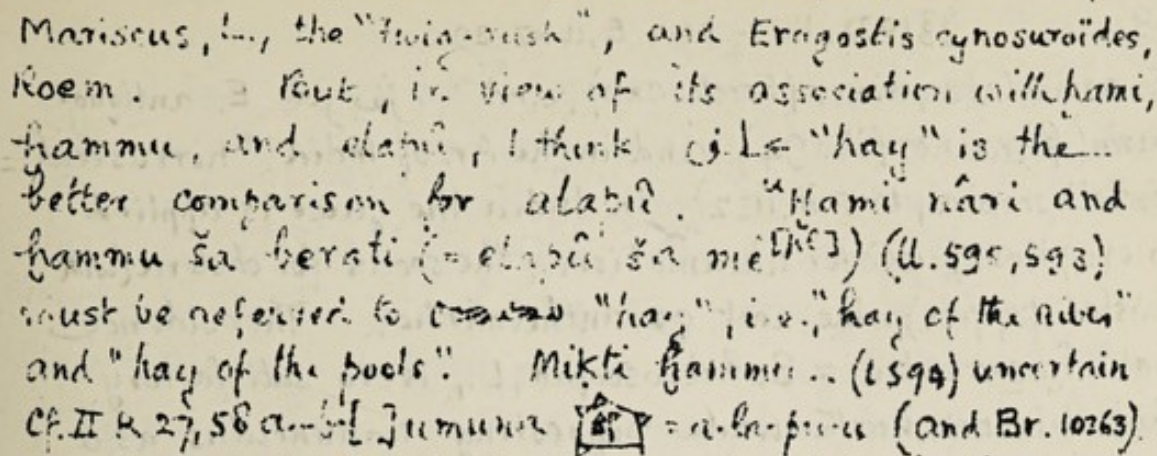 Mariscus, L., the "twig-rush", and Eragostis cynosuroïdes,
Roem. But, in view of its association with ḫami,
ḫammu, and elapû, I think "hay" is the
better comparison for alapû. Ḫami nâri and
ḫammu ša berati (= elapû ša mê) (ll. 595, 593)
must be referred to "hay", i.e., "hay of the river"
and "hay of the pools". Mikti ḫammu .. (l 594) uncertain
Cf. II R 27, 58 a-b [ ] umuna = a-la-pu-u (and Br. 10263)